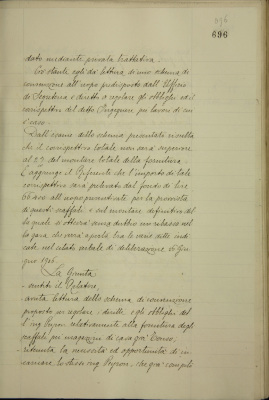 696
696
dato mediante privata trattativa.
Ciò stante egli dà lettura di uno schema di
convenzione all'uopo predisposto dall'Ufficio
di Segreteria e diretto a regolare gli obblighi ed il
corrispettivo del detto Ingegnere pei lavori di cui
è caso.
Dall'esame dello schema presentato risulta
che il corrispettivo totale non sarà superiore
al 2% del montare totale della fornitura.
Aggiunge il Riferente che l'importo di tale
corrispettivo sarà prelevato dal fondo di lire
all'uopo preventivato per la provvista
di questi scaffali e sul montare definitivo del
la quale si otterrà senza dubbio un ribasso nel
la gara che verrà aperta fra le varie ditte indi
cate nel citato verbale di deliberazione 6 Giu
gno 1906.
La Giunta
- sentito il Relatore,
- avuta lettura dello schema di convenzione
proposto per regolare i diritti e gli obblighi del
l'ing. Peyron relativamente alla fornitura degli
scaffali pei magazzini di casa già
- ritenuta la necessità ed opportunità di in
caricare lo stesso ing. Peyron, che già compilò